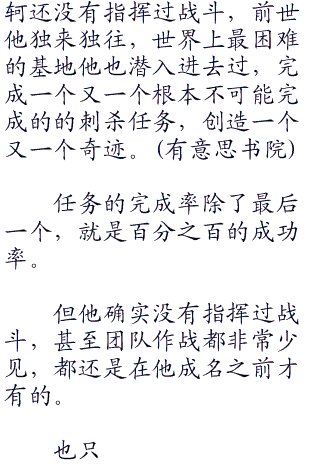 轲还没有指挥过战斗，前世
他独来独往，世界上最困难
的基地他也潜入进去过，完
成一个又一个根本不可能完
成的的刺杀任务，创造一个
又一个奇迹。(有意思书院)
任务的完成率除了最后
一个，就是百分之百的成功
率。
但他确实没有指挥过战
斗，甚至团队作战都非常少
见，都还是在他成名之前才
有的。
也只